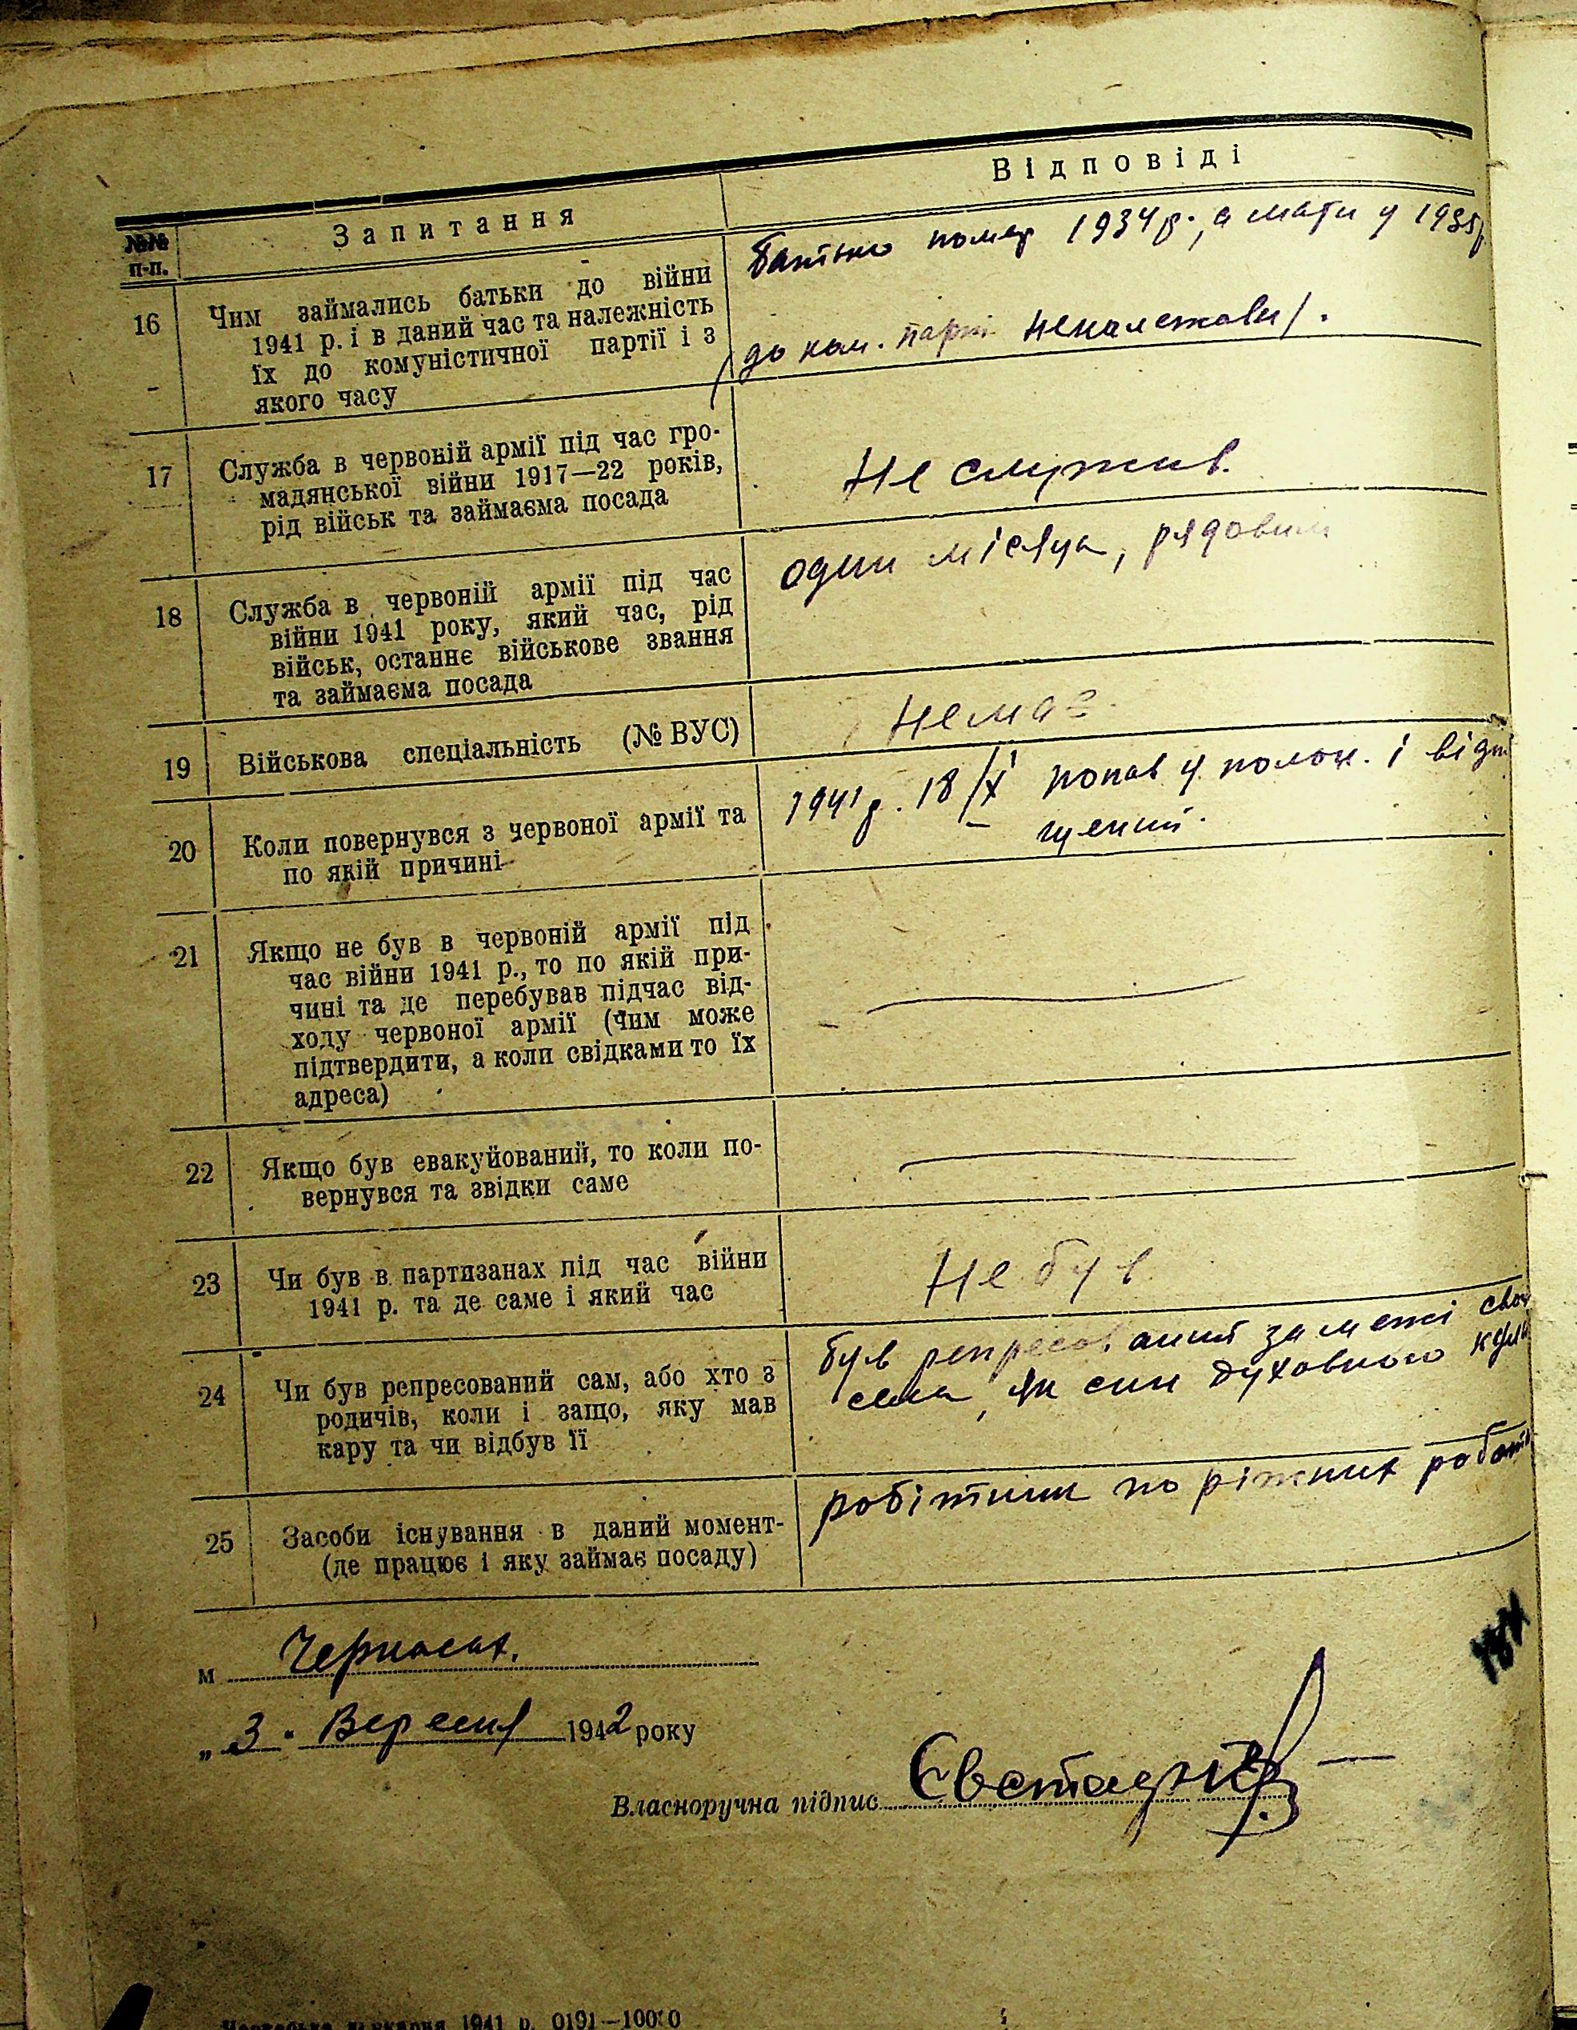 №№ п-п.
Запитання
Відповіді
16
Чим займались батьки до війни
1941 р. і в даний час та належність
їх до комуністичної партії і з
якого часу
батько помер 1934 р., а мати у 1935 р
до ком. парті неналежали.
17
Служба в червоній армії під час гро-
мадянської війни 1917—22 років,
рід військ та займаєма посада
Не служив.
18
Служба в червоній армії під час
війни 1941 року, який час, рід
військ, останнє військове звання
та займаєма посада
один місяць, рядовим
19
Військова спеціальність (№ ВУС)
Немає.
20
Коли повернувся з червоної армії та
по якій причині
1941 р. 18/X попав у полон. і відпу
щений.
21
Якщо не був в червоній армії під
час війни 1941 р., то по якій при-
чині та де перебував підчас від-
ходу червоної армії (Чим може
підтвердити, а коли свідками то їх
адреса)
22
Якщо був евакуйований, то коли по-
вернувся та звідки саме
23
Чи був в партизанах під час війни
1941 р. та де саме і який час
Не був
24
Чи був репресований сам, або хто з
родичів, коли і защо, яку мав
кару та чи відбув її
був репресований за межі свого
села, як син духовного
25
Засоби існування в даний момент-
(де працює і яку займає посаду)
робітник по ріжних робот
м Черкаси.
„ 3 " Вересня 1942 року
Власноручна підпис
Черкаська 1941 р. 0191—10000